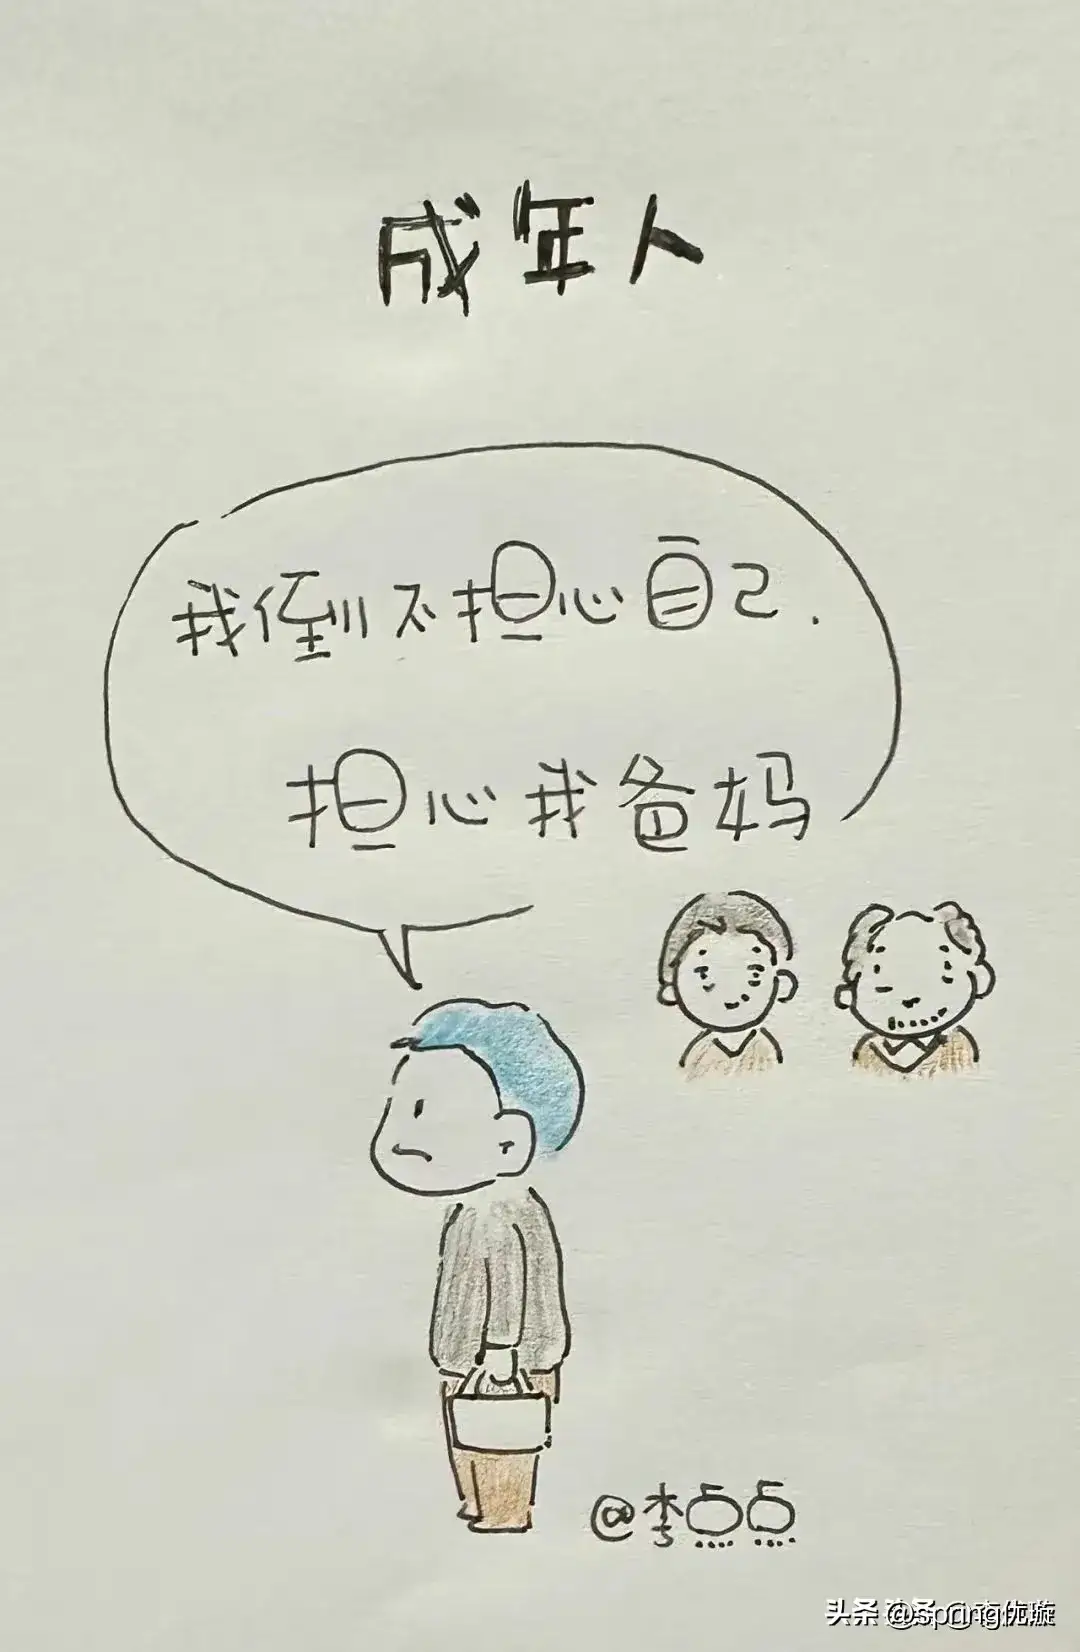 成年人
我倒不担心自己.
担心我爸妈
@李点点
头条 @Spring优璇